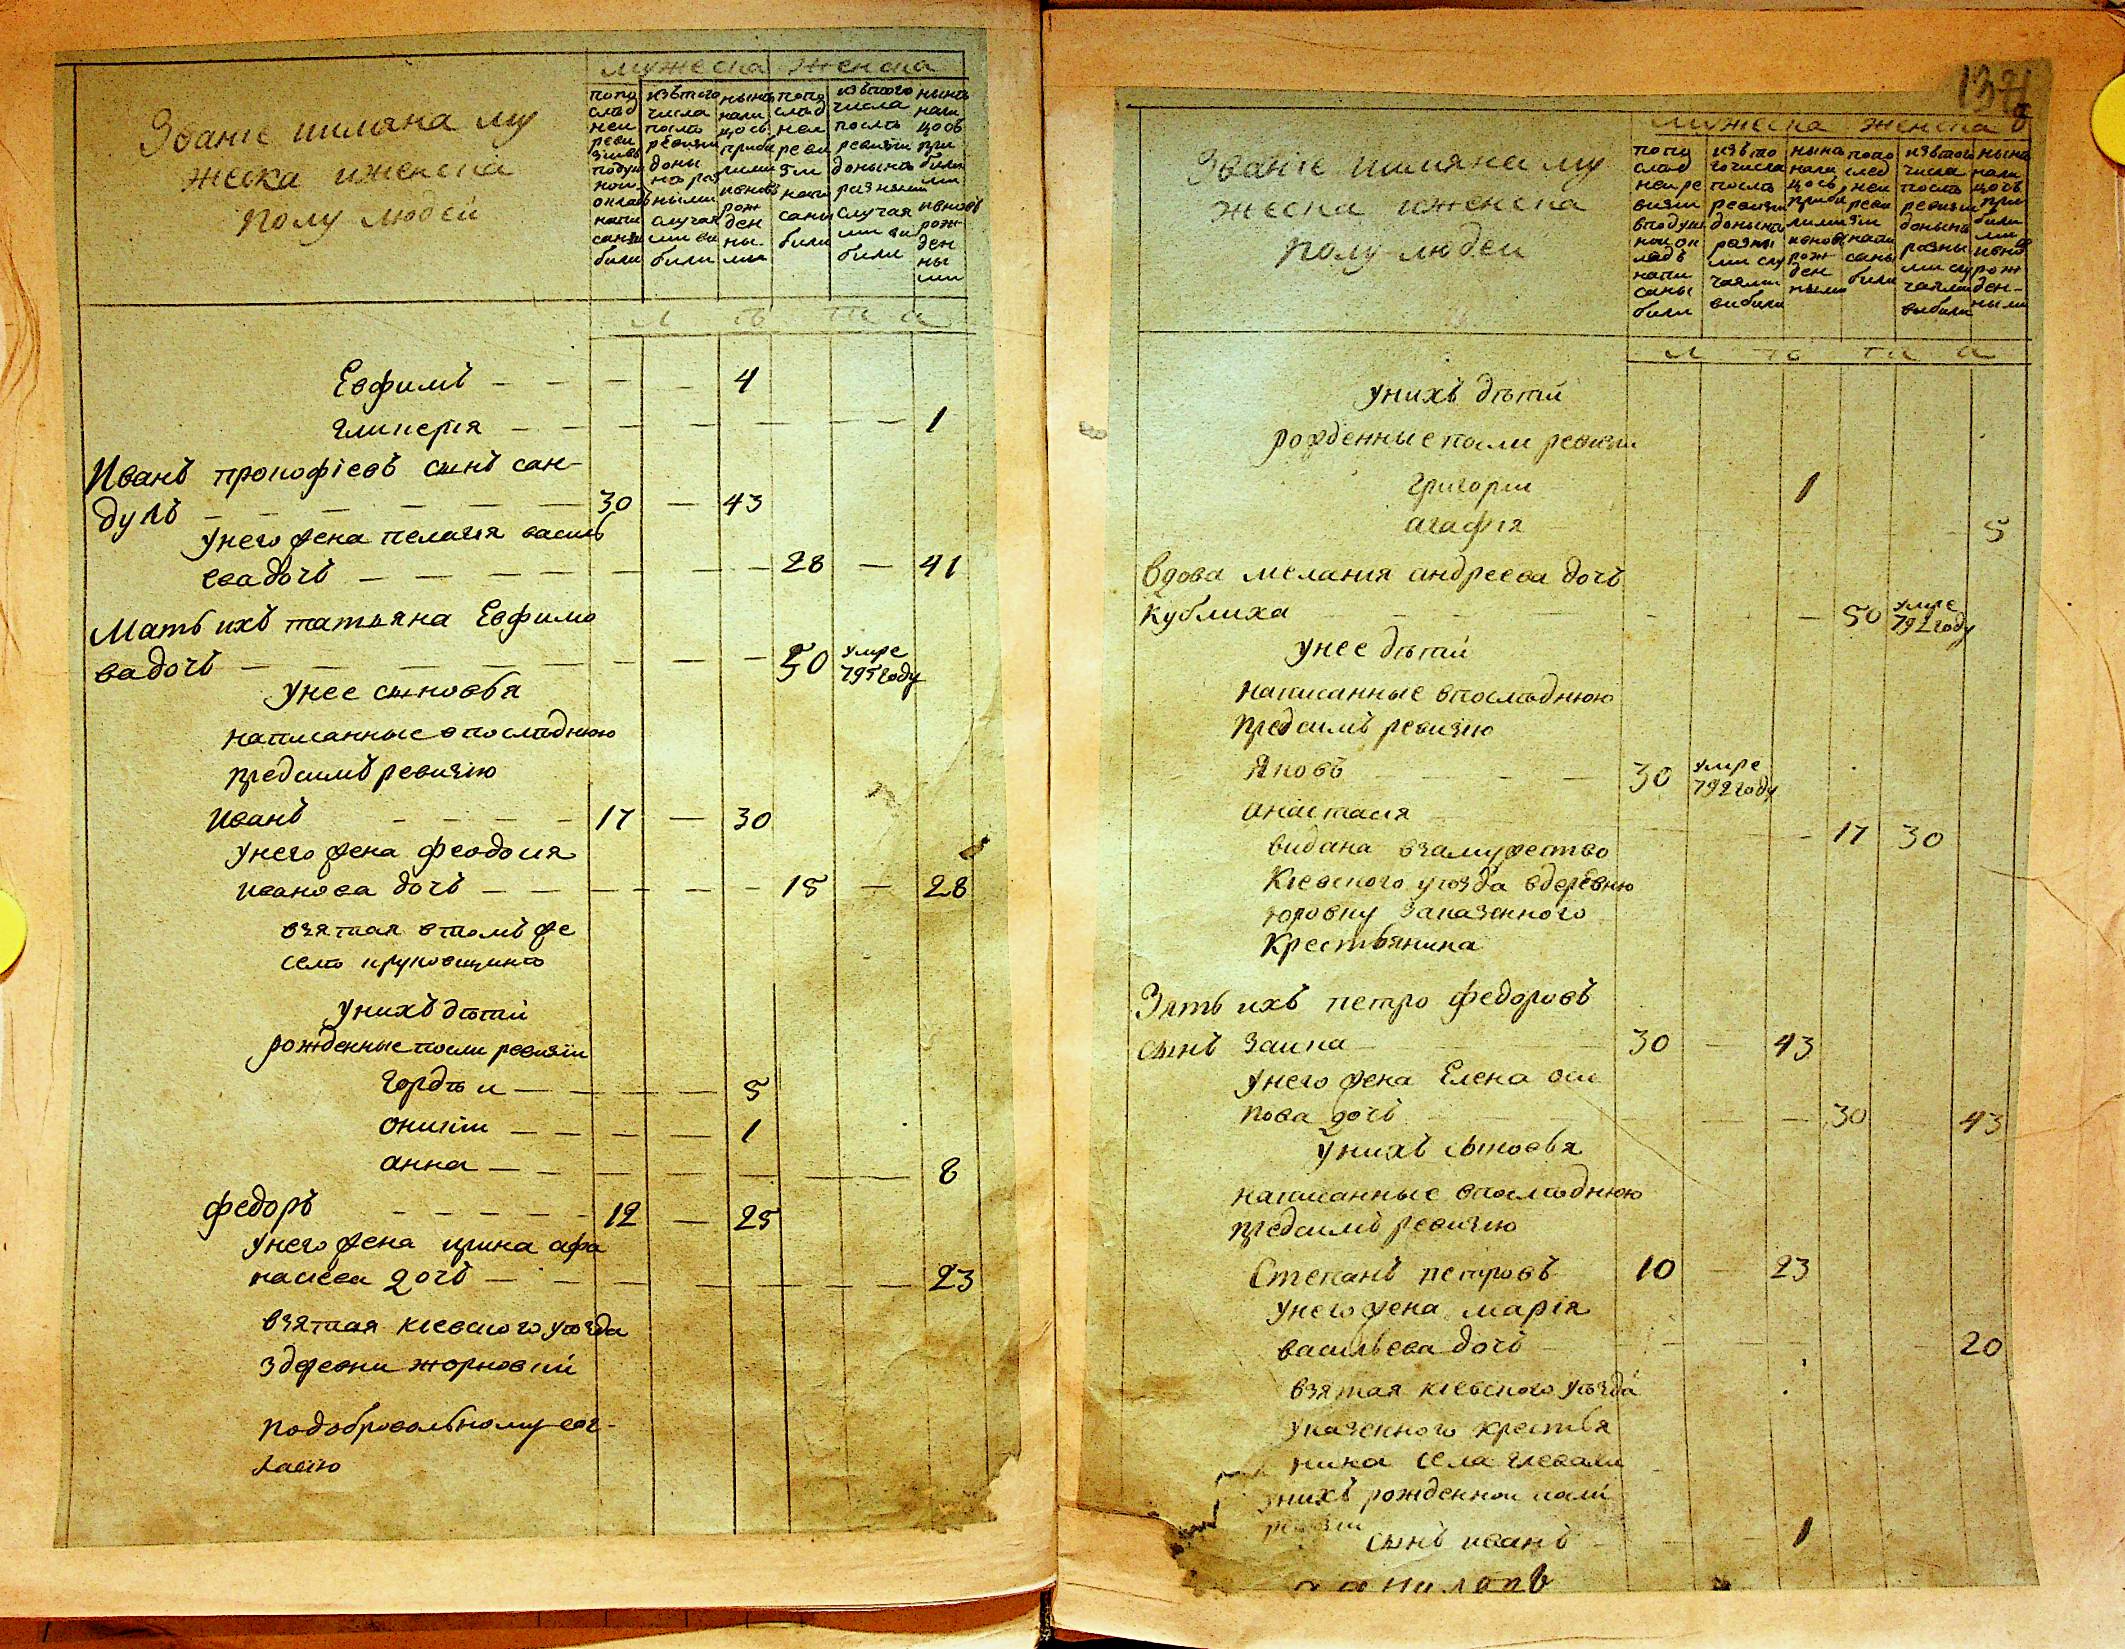 мужеска женска
Званіе имяна му
жеска иженска
полу людей
попо
след
ней
реви
зіи въ
подуш
ной
окладъ
напи
саны
были
изътого
числа
послѣ
ревизіи
доны
нѣ раз
ными
случая
ми вы
были
нынѣ
нали
цо съ
прибы
лыми
ивновь
рож
ден
ны
ми
попо
след
ней
реви
зіи
напи
саны
были
изътого
числа
послѣ
ревизіи
донынѣ
разными
случая
ми вы
были
нынѣ
нали
цо съ
при
былы
ми
ивновь
рож
ден
ны
ми
л ѣ т а
Евфимъ 4
гликерія 1
Иванъ прокофіевъ сынъ сан-
дуль 30 — 43
унего жена пелагія василь
ева дочь 28 — 41
Мать ихъ татьяна Евфимо
ва дочь 50 умре
795 году
унее сыновья
написанные впослѣднюю
предсимъ ревизію
иванъ 17 — 30
унего жена феодосія
иванова дочь 15 — 28
взятая втомъ же
селѣ круковщинѣ
унихъ дѣтей
рожденные посли ревизіи
гордѣй 5
онисим 1
анна 8
федоръ 12 — 25
унего жена ирина афа
насіева дочь 23
взятая кіевского уѣзда
здеревни жорновки
подобровольному сог-
ласію
137
мужеска женска
Званіе имяна му
жеска иженска
полу людей
попо
след
ней ре
визіи
вподуш
ной ок
ладъ
напи
саны
были
изъто
го числа
послѣ
ревизіи
донынѣ
разны
ми слу
чаями
выбыли
нынѣ
нали
цо съ
прибы
лыми
ивновь
рож
ден
ными
попо
след
ней
реви
зіи
напи
саны
были
изътого
числа
послѣ
ревизіи
донынѣ
разны
ми слу
чаями
выбыли
нынѣ
нали
цо съ
при
былы
ми
ивно
рож
ден-
ными
л ѣ т а
унихъ дѣтей
рожденные посли ревизіи
григорій 1
агафія 5
вдова меланія андреева дочь
кублиха 50 умре
792 году
унее дѣтей
написанные впослѣднюю
предсимъ ревизію
яковъ 30 умре
792 году
анастасія 17 30
видана взамужество
Кіевского уѣзда вдеревню
юровку заказенного
крестьянина
Зять ихъ петро федоровъ
сынъ заика 30 — 43
унего жена Елена оси
пова дочь 30 43
унихъ сыновья
написанные впослѣднюю
предсимъ ревизію
Степанъ петровъ 10 — 23
унего жена марія
васильева дочь 20
взятая кіевского уѣзда
указенного крестья
нина села глевахи
унихъ рожденной посли
ревизіи
сынъ иванъ 1